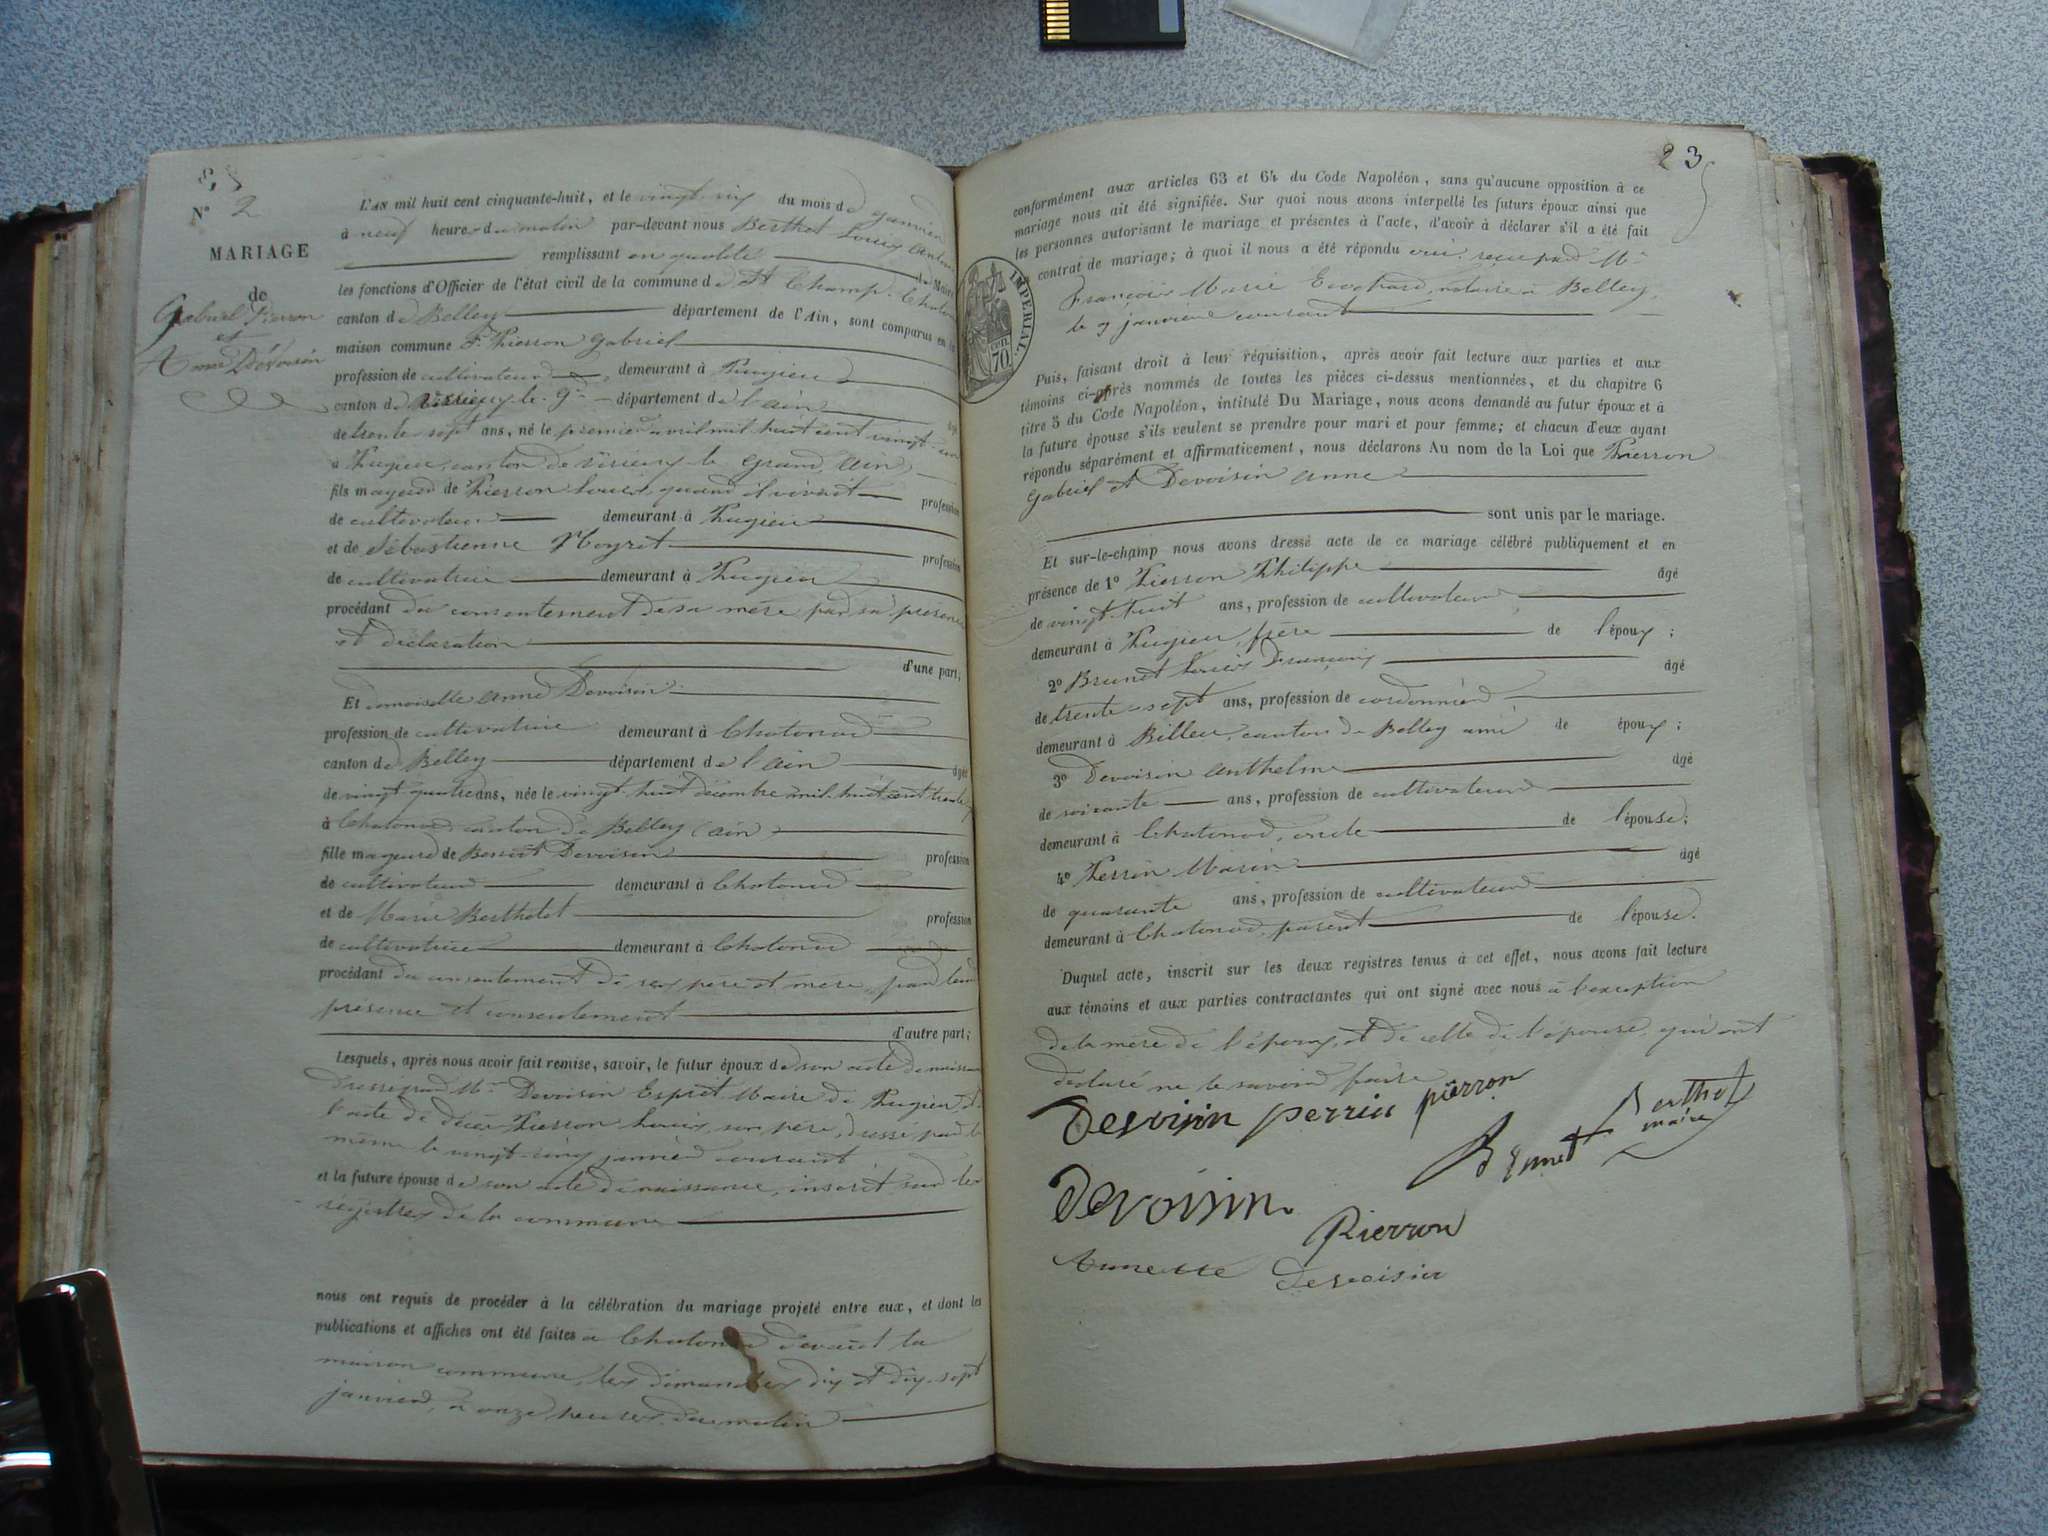 N° 2
MARIAGE
de
Gabriel Pierron
et
Anne Devoisin
L'AN mil huit cent cinquante-huit, et le vingt-six du mois de janvier
à neuf heures du matin par-devant nous Berthet Louis Anton
remplissant en qualité de Maire
les fonctions d'Officier de l'état civil de la commune de St Champ-Chaton
canton de Belley département de l'Ain, sont comparus en la
maison commune Pierron Gabriel
profession de cultivateur demeurant à Pugieu
canton de Virieu le gd département de l'ain âgé
de trente sept ans, né le premier avril mil huit cent vingt-un
à Pugieu, canton de Virieu le Grand, Ain
fils majeur de Pierron Louis, quand il vivait profession
de cultivateur demeurant à Pugieu
et de Sébastienne Moyret profession
de cultivatrice demeurant à Pugieu
procédant du consentement de sa mère par sa présence
et déclaration
d'une part;
Et demoiselle anne Devoisin
profession de cultivatrice demeurant à Chatonod
canton de Belley département de l'ain âgé
de vingt quatre ans, née le vingt huit décembre mil huit cent trente
à Chatonod canton de Belley (ain)
fille majeure de Benoit Devoisin profession
de cultivateur demeurant à Chatonod
et de Marie Berthelet profession
de cultivatrice demeurant à Chatonod
procédant du consentement de ses père et mère, par leur
présence et consentement
d'autre part;
Lesquels, après nous avoir fait remise, savoir, le futur époux de son acte de naissance
dressé par Mr Devoisin Esprit Maire de Pugieu et
l'acte de décès Pierron Louis, son père, dressé par le
même le vingt-cinq janvier courant
et la future épouse de son acte de naissance, inscrit sur les
régistres de la commune
nous ont requis de procéder à la célébration du mariage projeté entre eux, et dont les
publications et affiches ont été faites à Chatonod devant la
maison commune, les dimanches dix et dix-sept
janvier, à onze heures du matin
23
IMPERIAL.
70
conformément aux articles 63 et 64 du Code Napoléon, sans qu'aucune opposition à ce
mariage nous ait été signifiée. Sur quoi nous avons interpellé les futurs époux ainsi que
les personnes autorisant le mariage et présentes à l'acte, d'avoir à déclarer s'il a été fait
contrat de mariage; à quoi il nous a été répondu oui, reçu par Me
François Marie notaire à Belley,
le 9 janvier courant
Puis, faisant droit à leur réquisition, après avoir fait lecture aux parties et aux
témoins ci-après nommés de toutes les pièces ci-dessus mentionnées, et du chapitre 6
titre 5 du Code Napoléon, intitulé Du Mariage, nous avons demandé au futur époux et à
la future épouse s'ils veulent se prendre pour mari et pour femme; et chacun d'eux ayant
répondu séparément et affirmativement, nous déclarons Au nom de la Loi que Pierron
Gabriel et Devoisin anne
sont unis par le mariage.
Et sur-le-champ nous avons dressé acte de ce mariage célébré publiquement et en
présence de 1° Pierron Philippe âgé
de vingt huit ans, profession de cultivateur
demeurant à Pugieu, frère de l'époux;
2° Brunet Louis François âgé
de trente-sept ans, profession de cordonnier
demeurant à Billieu, canton de Belley ami de époux;
3° Devoisin anthelme âgé
de soixante ans, profession de cultivateur
demeurant à Chatonod, oncle de l'épouse;
4° Perrin Marin âgé
de quarante ans, profession de cultivateur
demeurant à Chatonod, parent de l'épouse.
Duquel acte, inscrit sur les deux registres tenus à cet effet, nous avons fait lecture
aux témoins et aux parties contractantes qui ont signé avec nous à l'exception
de la mère de l'époux, et de celle de l'épouse, qui ont
déclaré ne le savoir faire
Devoisin perrin pierron
Berthet
maire
Brunet
Devoisin.
Pierron
Annette Devoisin